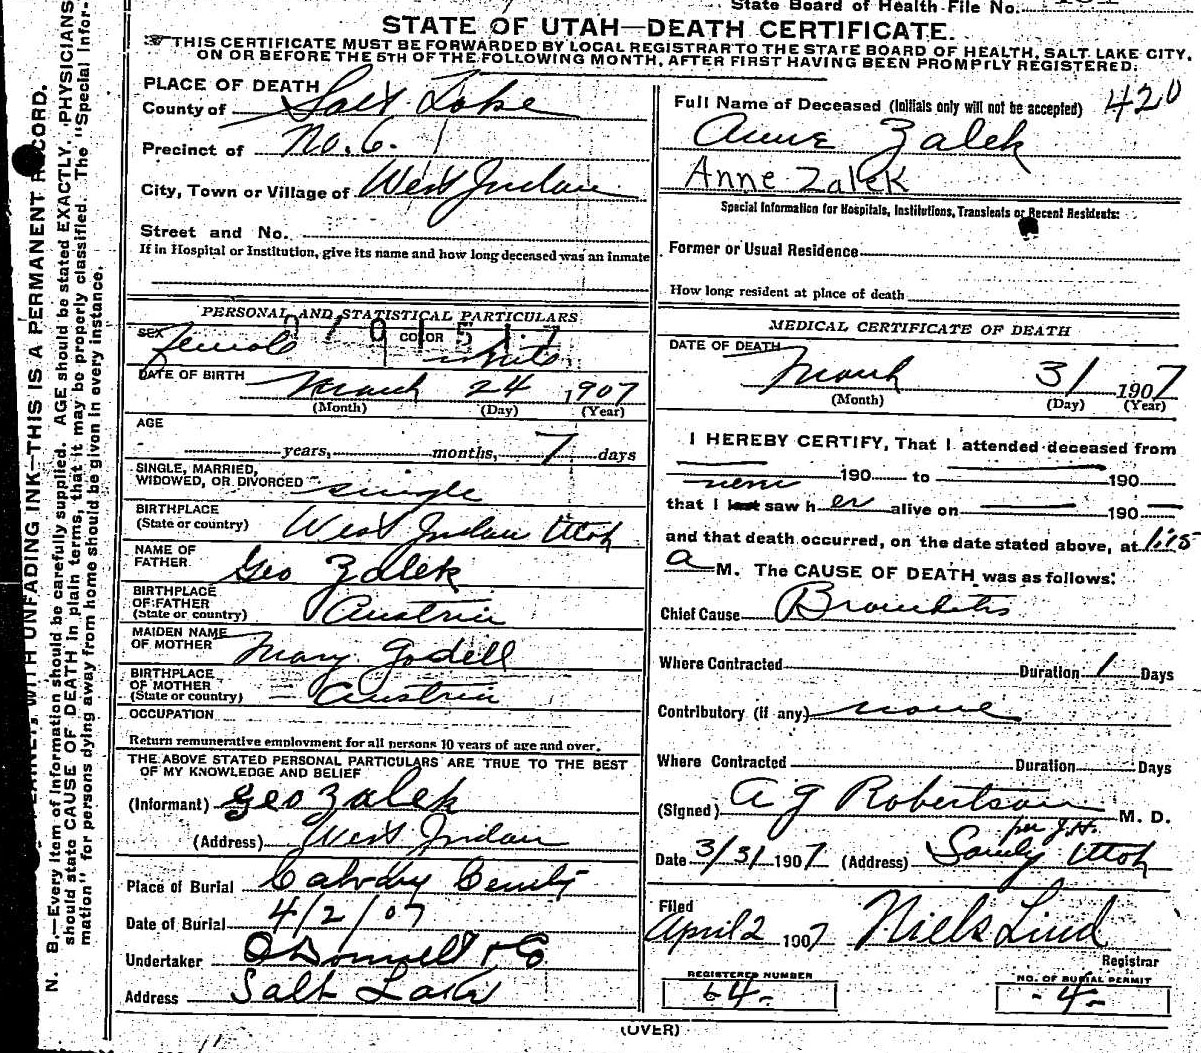 State Board of Health File No.
STATE OF UTAH—DEATH CERTIFICATE.
THIS CERTIFICATE MUST BE FORWARDED BY LOCAL REGISTRAR TO THE STATE BOARD OF HEALTH, SALT LAKE CITY,
ON OR BEFORE THE 5TH OF THE FOLLOWING MONTH, AFTER FIRST HAVING BEEN PROMPTLY REGISTERED.
PLACE OF DEATH
County of Salt Lake
Precinct of No. 6.
City, Town or Village of West Jordan
Street and No.
If in Hospital or Institution, give its name and how long deceased was an inmate
PERSONAL AND STATISTICAL PARTICULARS
SEX female COLOR white
DATE OF BIRTH March 24 1907
(Month) (Day) (Year)
AGE
years, months, 7 days
SINGLE, MARRIED,
WIDOWED, OR DIVORCED single
BIRTHPLACE
(State or country) West Jordan Utah
NAME OF
FATHER Geo Zalek
BIRTHPLACE
OF FATHER
(State or country) Austria
MAIDEN NAME
OF MOTHER Mary Godell
BIRTHPLACE
OF MOTHER
(State or country) Austria
OCCUPATION
Return remunerative employment for all persons 10 years of age and over.
THE ABOVE STATED PERSONAL PARTICULARS ARE TRUE TO THE BEST
OF MY KNOWLEDGE AND BELIEF
(Informant) Geo Zalek
(Address) West Jordan
Place of Burial Calvary Cemty
Date of Burial 4/2/07
Undertaker O'Donnell & Co
Address Salt Lake
Full Name of Deceased (Initials only will not be accepted) 420
Anne Zalek
Anne Zalek
Special Information for Hospitals, Institutions, Transients or Recent Residents:
Former or Usual Residence
How long resident at place of death
MEDICAL CERTIFICATE OF DEATH
DATE OF DEATH
March 31 1907
(Month) (Day) (Year)
I HEREBY CERTIFY, That I attended deceased from
190 to 190
that I last saw h er alive on 190
and that death occurred, on the date stated above, at 1:15
a M. The CAUSE OF DEATH was as follows:
Chief Cause Bronchitis
Where Contracted Duration 1 Days
Contributory (if any) none
Where Contracted Duration Days
(Signed) A G Robertson M. D.
per J.H.
Date 3/31 1907 (Address) Sandy Utah
Filed
April 2 1907 Niels Lind
Registrar
REGISTERED NUMBER
64
NO. OF BURIAL PERMIT
-4-
(OVER)
WITH UNFADING INK—THIS IS A PERMANENT RECORD.
N. B.—Every item of information should be carefully supplied. AGE should be stated EXACTLY. PHYSICIANS
should state CAUSE OF DEATH in plain terms, that it may be properly classified. The "Special Infor-
mation" for persons dying away from home should be given in every instance.